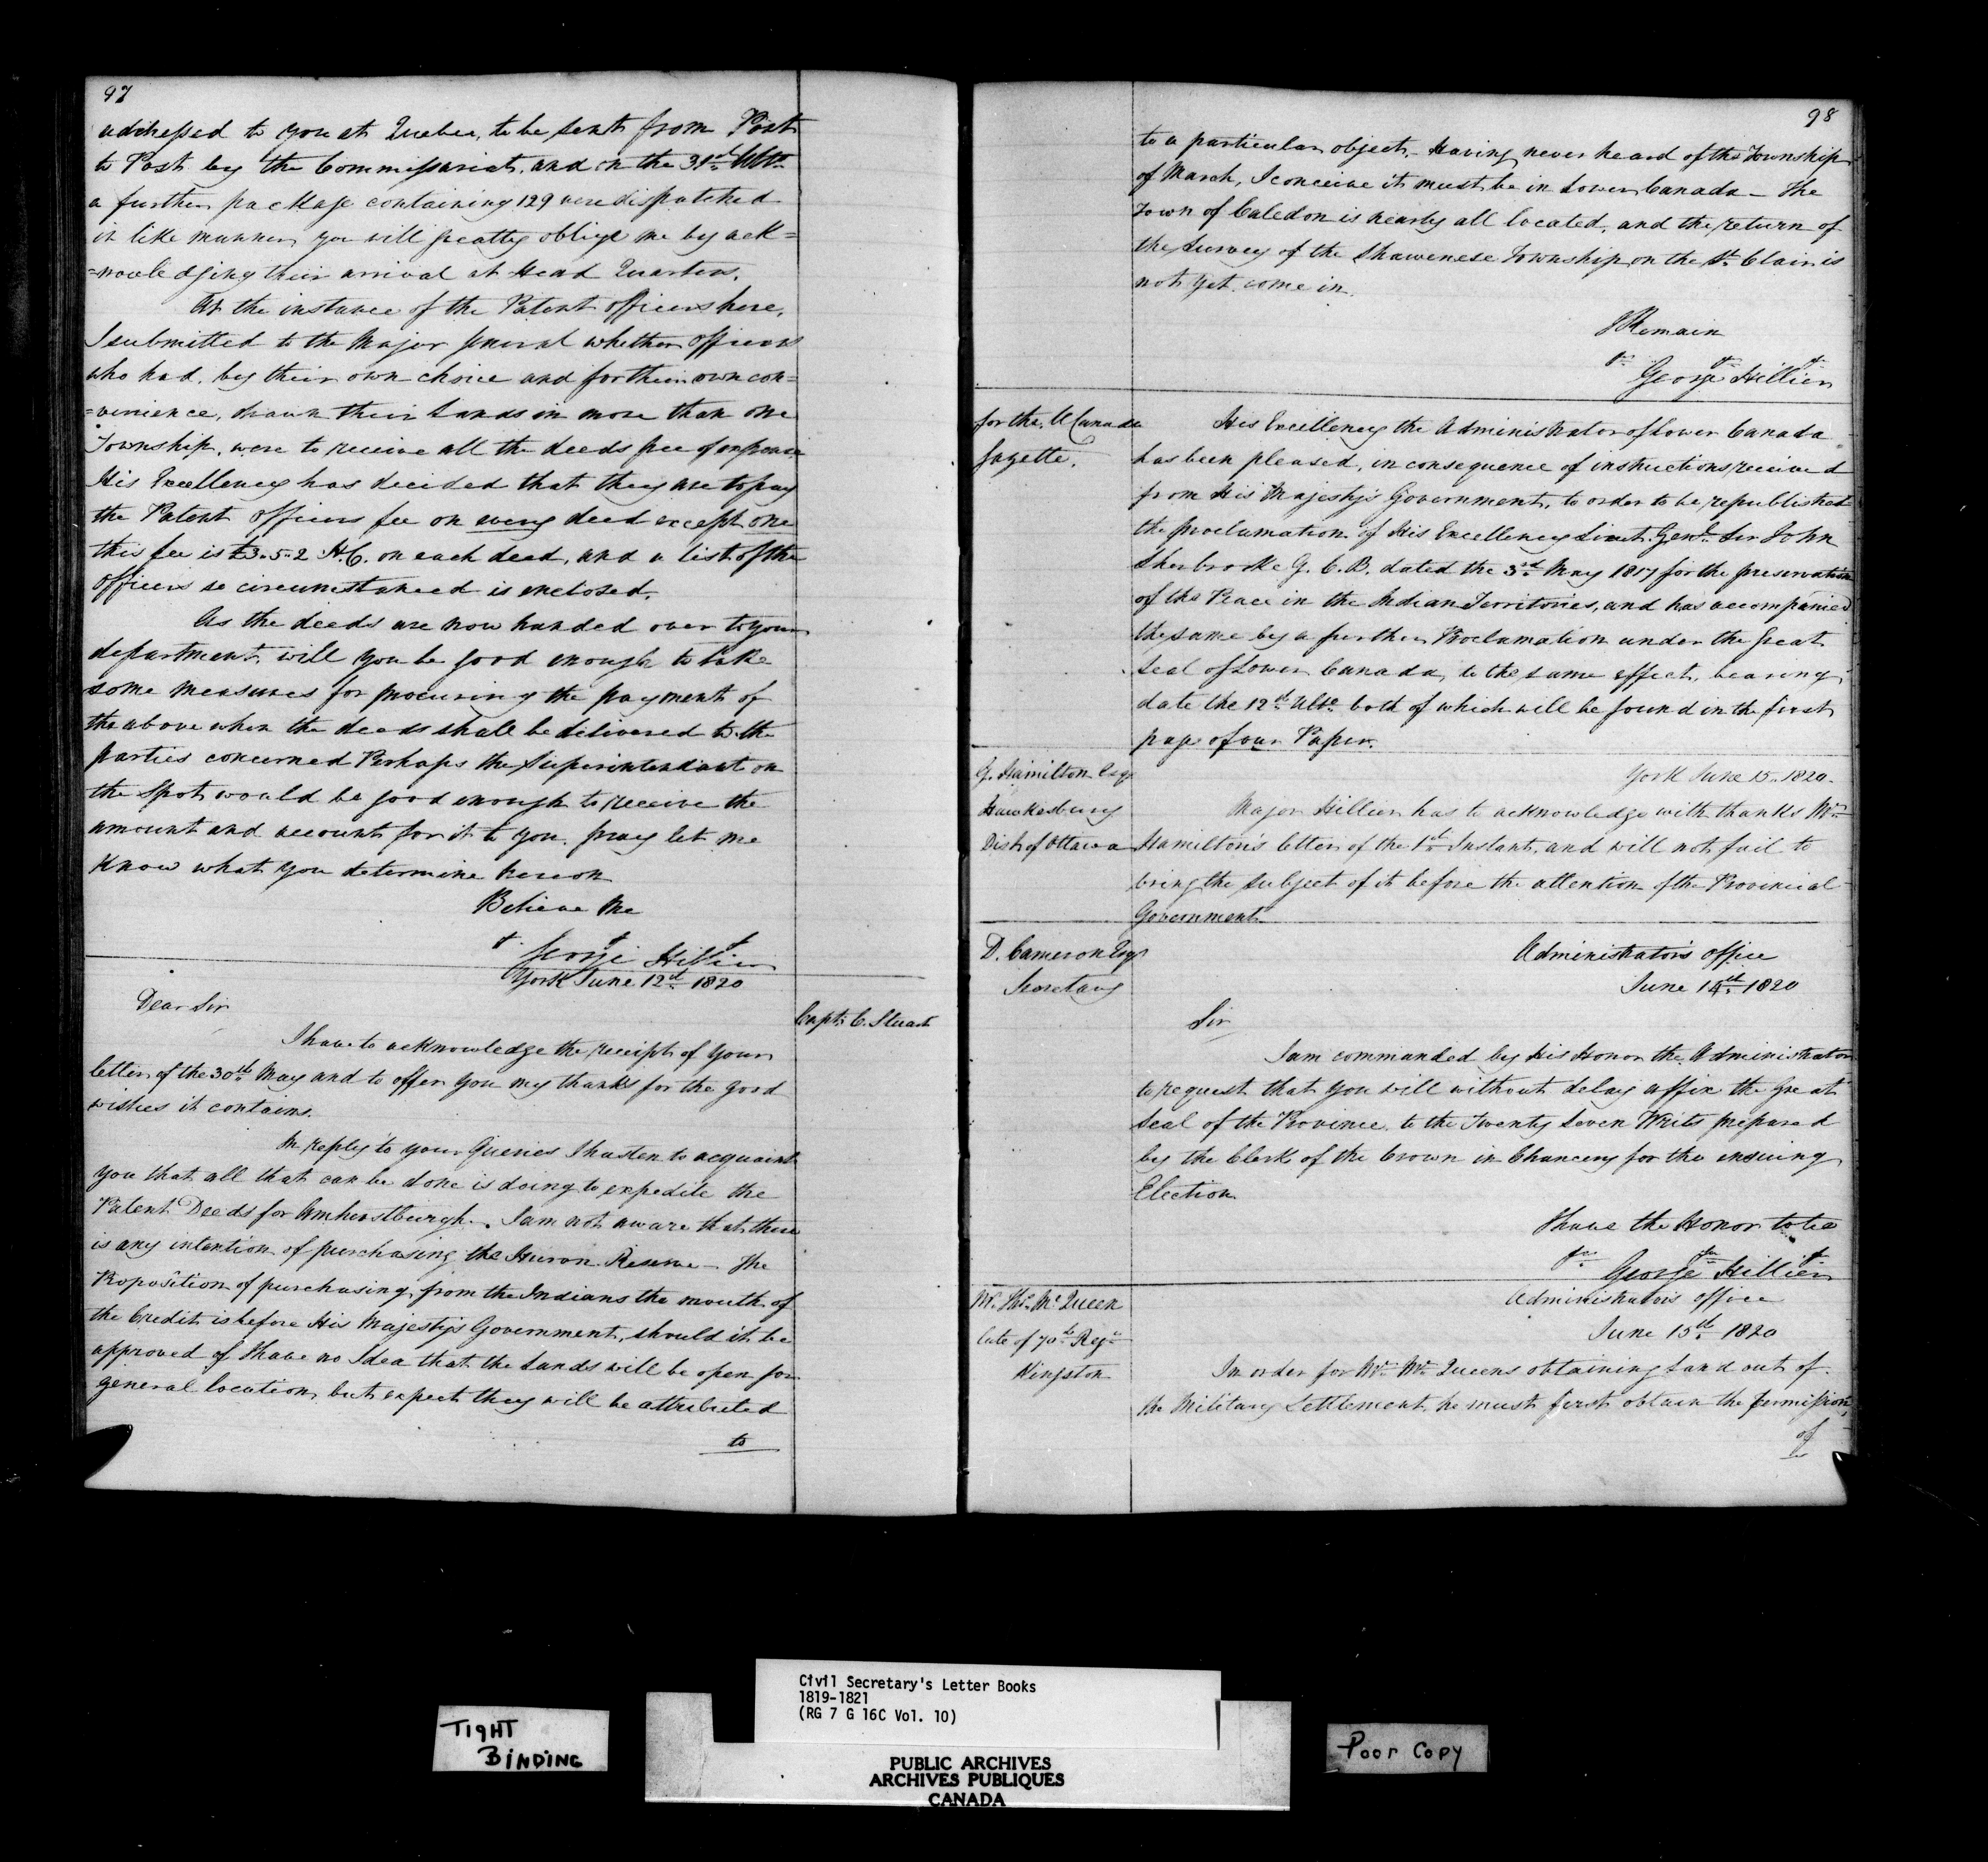 97
addressed to you at Quebec, to be sent from Post
to Post by the Commissariat, and on the 31st Ulto.
a further package containing 129 were dispatched
in like manner, you will greatly oblige me by ack=
=nowledging their arrival at Head Quarters.
At the instance of the Patent officers here,
I submitted to the Major General whether officers
who had, by their own choice and for their own con=
=venience, drawn their Lands in more than one
Township, were to receive all the deeds free of expence.
His Excellency has decided that they are to pay
the Patent officers fee on every deed except one
this fee is £3.5.2 H.C. on each deed, and a list of the
officers so circumstanced is enclosed.
As the deeds are now handed over to your
department, will you be good enough to take
some measures for procuring the payment of
the above when the deeds shall be delivered to the
parties concerned Perhaps the Superintendant on
the Spot would be good enough to receive the
amount and account for it to you. pray let me
know what you determine hereon
Believe Me
George Hillier
York June 12th 1820
Capt. C. Stuart
Dear Sir
I have to acknowledge the receipt of your
letter of the 30th May and to offer you my thanks for the good
wishes it contains.
In reply to your Queries I hasten to acquaint
you that all that can be done is doing to expedite the
Patent Deeds for Amherstburgh. I am not aware that there
is any intention of purchasing the Huron Reserve - The
Proposition of purchasing from the Indians the mouth of
the Credit is before His Majesty's Government, should it be
approved of I have no Idea that the Lands will be open for
general location, but expect they will be attributed
to
98
to a particular object. Having never heard of the Township
of March, I conceive it must be in Lower Canada - The
Town of Caledon is nearly all located, and the return of
the Survey of the Shawenese Township on the St. Clair is
not yet come in.
I Remain
George Hillier
for the U Canada
Gazette.
His Excellency the Administrator of Lower Canada
has been pleased, in consequence of instructions received
from His Majesty's Government, to order to be republished
the proclamation of His Excellency Lieut. Genl. Sir John
Sherbrooke G. C. B. dated the 3rd May 1817 for the preservation
of the Peace in the Indian Territories, and has accompanied
the same by a further Proclamation under the Great
Seal of Lower Canada, to the same effect, bearing
date the 12th Ulto. both of which will be found in the first
page of our Paper.
G. Hamilton Esqr
Hawkesbury
Dist of Ottawa
York June 15. 1820.
Major Hillier has to acknowledge with thanks Mr.
Hamilton's letter of the 1st Instant, and will not fail to
bring the subject of it before the attention of the Provincial
Government.
D. Cameron Esqr
Secretary
Administrators office
June 14th 1820
Sir
I am commanded by His Honor the Administrator
to request that you will without delay affix the Great
Seal of the Province to the Twenty Seven Writs prepared
by the Clerk of the Crown in Chancery for the ensuing
Election.
I have the Honor to be
George Hillier
Mr. Thos. Mc Queen
late of 70th Regt.
Kingston
Administrators office
June 15th 1820
In order for Mr. Mc Queens obtaining Land out of
the Military Settlement, he must first obtain the permission
of
Civil Secretary's Letter Books
1819-1821
(RG 7 G 16C Vol. 10)
TIGHT
BINDING
Poor Copy
PUBLIC ARCHIVES
ARCHIVES PUBLIQUES
CANADA